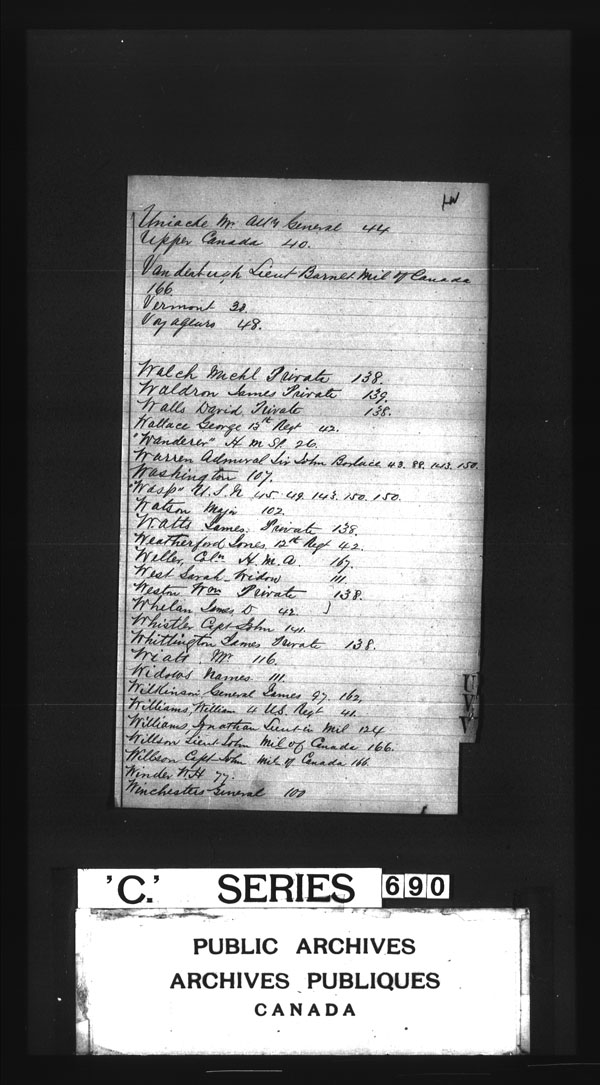 W
Uniacke Mr Atty General 44
Upper Canada 40.
Vanderburgh Lieut Barnet Mil of Canada
166
Vermont 38.
Voyageurs 48.
Walch Michl Private 138.
Waldron James Private 139.
Walls David Private 138.
Wallace George 13th Regt 42.
"Wanderer" H M Sp. 26.
Warren Admiral Sir John Borlace 43. 88. 143. 150.
Washington 107.
"Wasp" U.S.N. 45. 49. 143. 150. 150.
Watson Major 102.
Watts James Private 138.
Weatherford Jones 12th Regt 42.
Weller, Coln H. M. A. 167.
West Sarah Widow 111.
Weston Wm Private 138.
Whelan James D 42. }
Whistler Capt John 141.
Whittington James Private 138.
Wiatt Mr 116.
Widows Names 111.
Wilkinson General James 27. 162.
Williams, William 4 U.S. Regt 41.
Williams Jonathan Lieut in Mil 124
Willson Lieut John Mil of Canada 166.
Willson Capt John Mil of Canada 166
Winder W.H 77.
Winchesters General 100
U
V
V
'C.' SERIES 690
PUBLIC ARCHIVES
ARCHIVES PUBLIQUES
CANADA